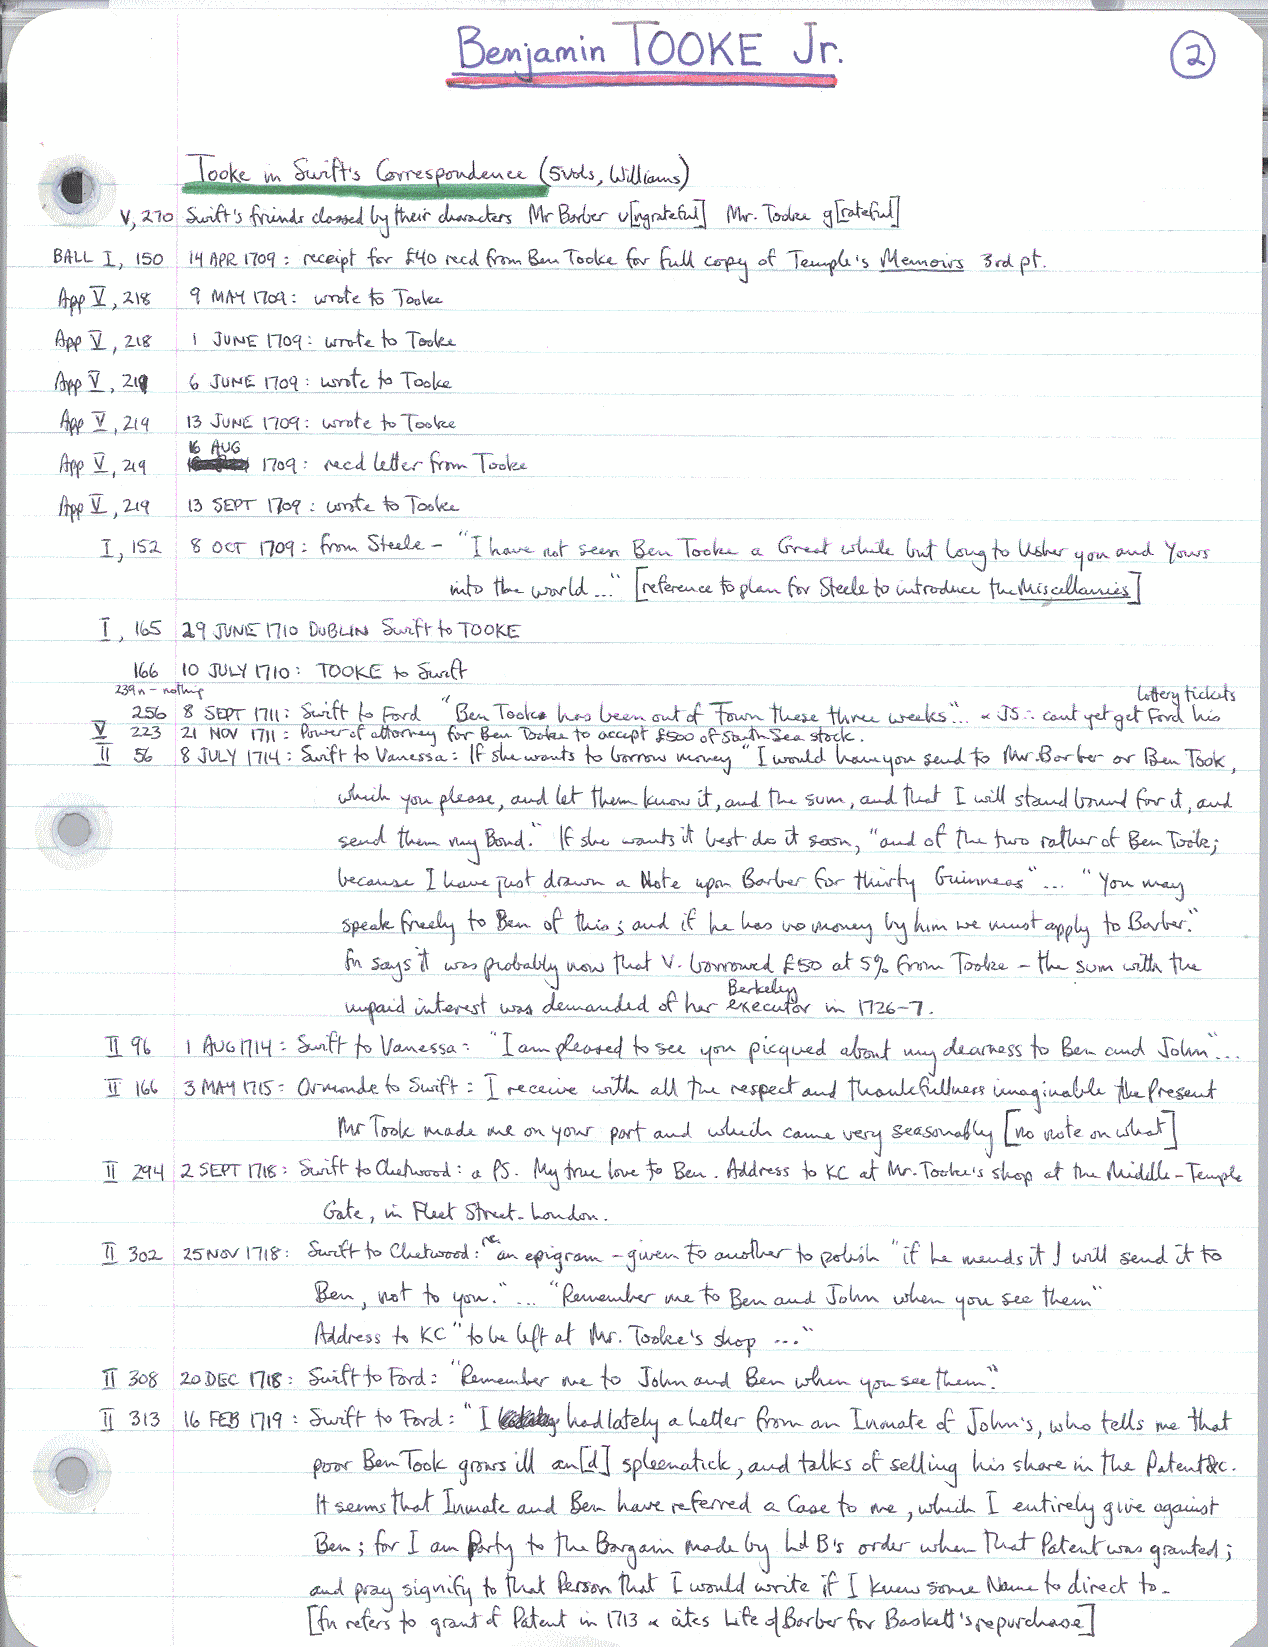 Benjamin TOOKE Jr.
2
Tooke in Swift's Correspondence (5vols, Williams)
V, 270 Swift's friends classed by their characters Mr Barber u[ngrateful] Mr. Tooke g[rateful]
BALL I, 150 14 APR 1709: receipt for £40 recd from Ben Tooke for full copy of Temple's Memoirs 3rd pt.
App V, 218 9 MAY 1709: wrote to Tooke
App V, 218 1 JUNE 1709: wrote to Tooke
App V, 219 6 JUNE 1709: wrote to Tooke
App V, 219 13 JUNE 1709: wrote to Tooke
16 AUG
App V, 219 1709: recd letter from Tooke
App V, 219 13 SEPT 1709: wrote to Tooke
I, 152 8 OCT 1709: from Steele - "I have not seen Ben Tooke a Great while but long to Usher you and Yours
into the world..." [reference to plan for Steele to introduce the Miscellanies]
I, 165 29 JUNE 1710 DUBLIN Swift to TOOKE
166 10 JULY 1710: TOOKE to Swift
239n - nothing
lottery tickets
256 8 SEPT 1711: Swift to Ford "Ben Tooke has been out of Town these three weeks"... & JS ∴ cant yet get Ford his
V 223 21 NOV 1711: Power of attorney for Ben Tooke to accept £500 of South Sea stock.
II 56 8 JULY 1714: Swift to Vanessa: If she wants to borrow money "I would have you send to Mr. Barber or Ben Took,
which you please, and let them know it, and the sum, and that I will stand bound for it, and
send them my Bond." If she wants it best do it soon, "and of the two rather of Ben Took;
because I have just drawn a Note upon Barber for thirty Guinneas"... "You may
speak freely to Ben of this; and if he has no money by him we must apply to Barber."
fn says it was probably now that V. borrowed £50 at 5% from Tooke - the sum with the
Berkeley
unpaid interest was demanded of her executor in 1726-7.
II 96 1 AUG 1714: Swift to Vanessa: "I am pleased to see you picqued about my dearness to Ben and John"...
II 166 3 MAY 1715: Ormonde to Swift: I receive with all the respect and thankfullness imaginable the Present
Mr Took made me on your part and which came very seasonably [no note on what]
II 294 2 SEPT 1718: Swift to Chetwood: a PS. My true love to Ben. Address to KC at Mr. Tooke's shop at the Middle-Temple
Gate, in Fleet Street - London.
II 302 25 NOV 1718: Swift to Chetwood: re. an epigram - given to another to polish "if he mends it I will send it to
Ben, not to you."... "Remember me to Ben and John when you see them"
Address to KC "to be left at Mr. Tooke's shop ..."
II 308 20 DEC 1718: Swift to Ford: "Remember me to John and Ben when you see them."
II 313 16 FEB 1719: Swift to Ford: "I had lately a Letter from an Inmate of John's, who tells me that
poor Ben Took grows ill an[d] spleenatick, and talks of selling his share in the Patent &c.
It seems that Inmate and Ben have referred a Case to me, which I entirely give against
Ben; for I am Party to the Bargain made by Ld B's order when that Patent was granted;
and pray signify to that Person that I would write if I knew some Name to direct to -
[fn refers to grant of Patent in 1713 & cites Life of Barber for Baskett's repurchase]